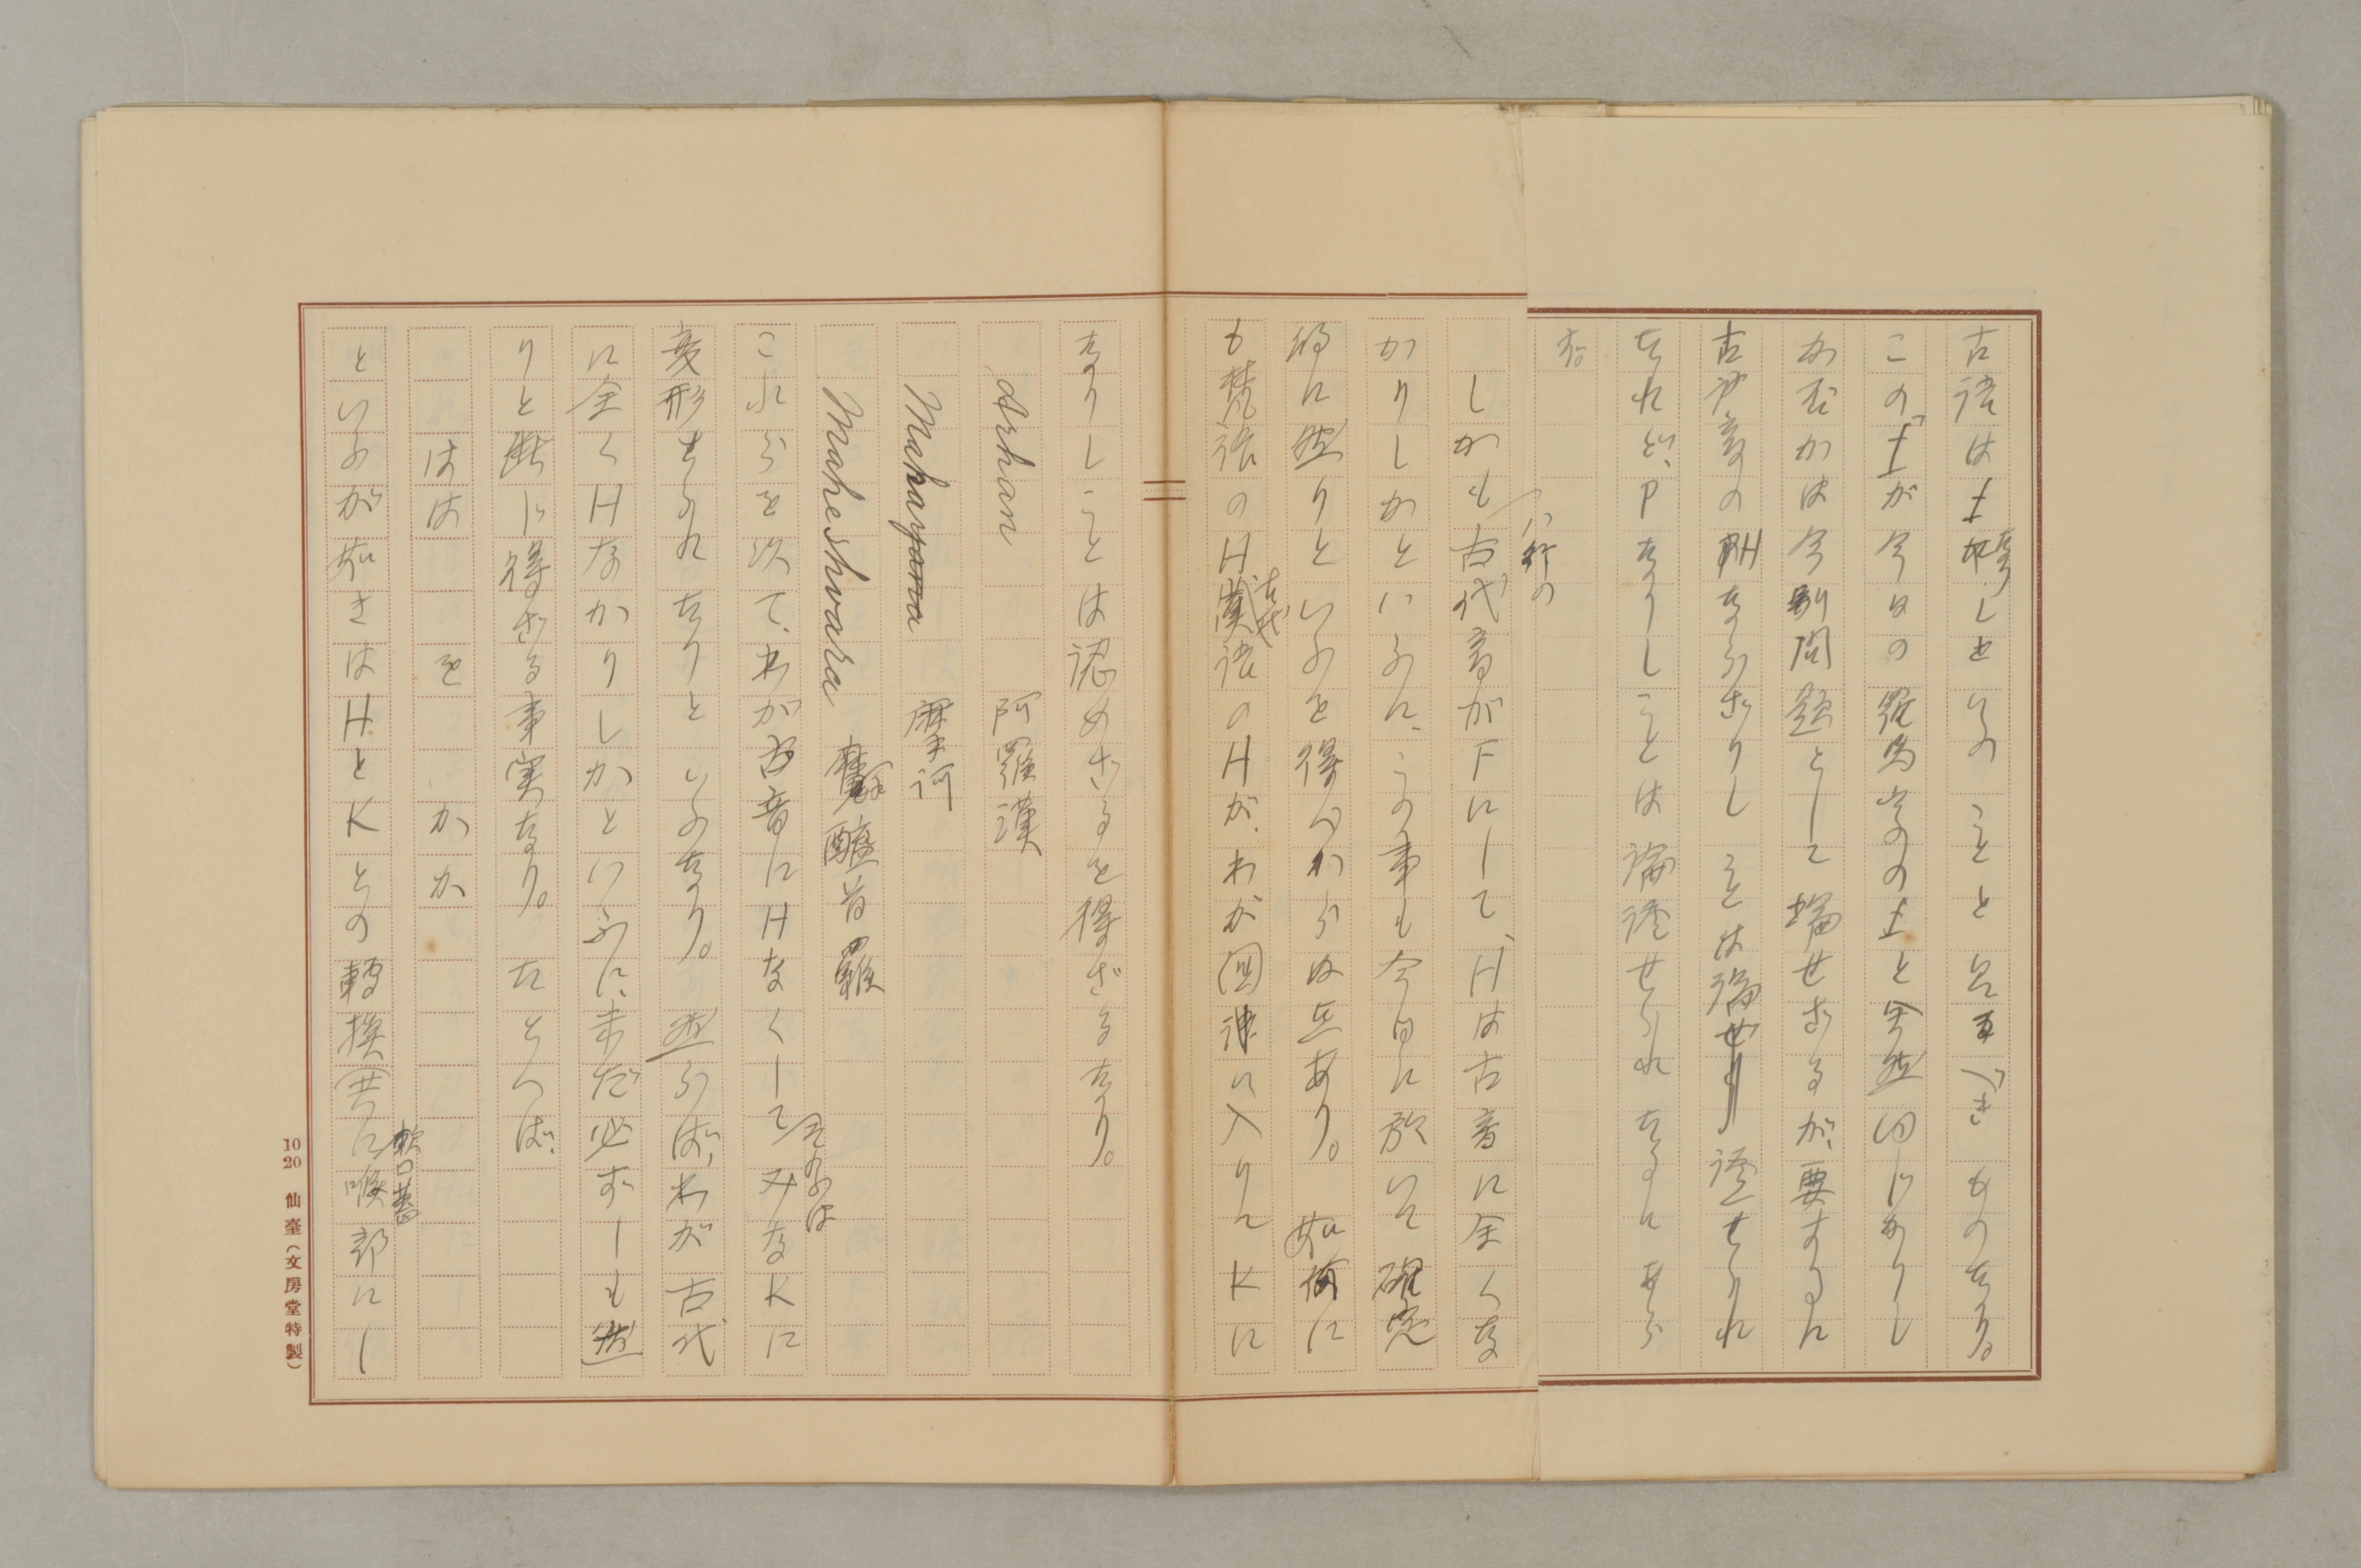 古語はfなりしといふことと見るべきものなり。
このfが今日の羅馬字のfと全然同じかりし
か否かは今別問題として論せざるが、要するに
古ハ音のHならざりしことは論證せられ
たれど、PなりしことはPなりしことは論證せられたるにあら
ず。
しかもハ行の古代音がFにして、Hは古音に全くな
かりしかといふに、この事も今日に於いて確定
的に然りといふを得べからぬ点あり。如何に
も梵語のH古代漢語のHが、わが国語に入りてKに
なりしことは認めざるを得ざるなり。
Arhan 阿羅漢
Mahayana 摩訶
Maheshvara 摩醯首羅
これらを以て、わが古音にHなくしてそれらはみなKに
変形せられたりといふなり。然らば、わが古代
に全くHなかりしかといふに、未だ必ずしも然
りと断じ得ざる事実なり。たとへば、
はは を かか
といふが如きはHとKとの轉換共に軟口蓋喉部にし
10 20 仙臺(文房堂特製)